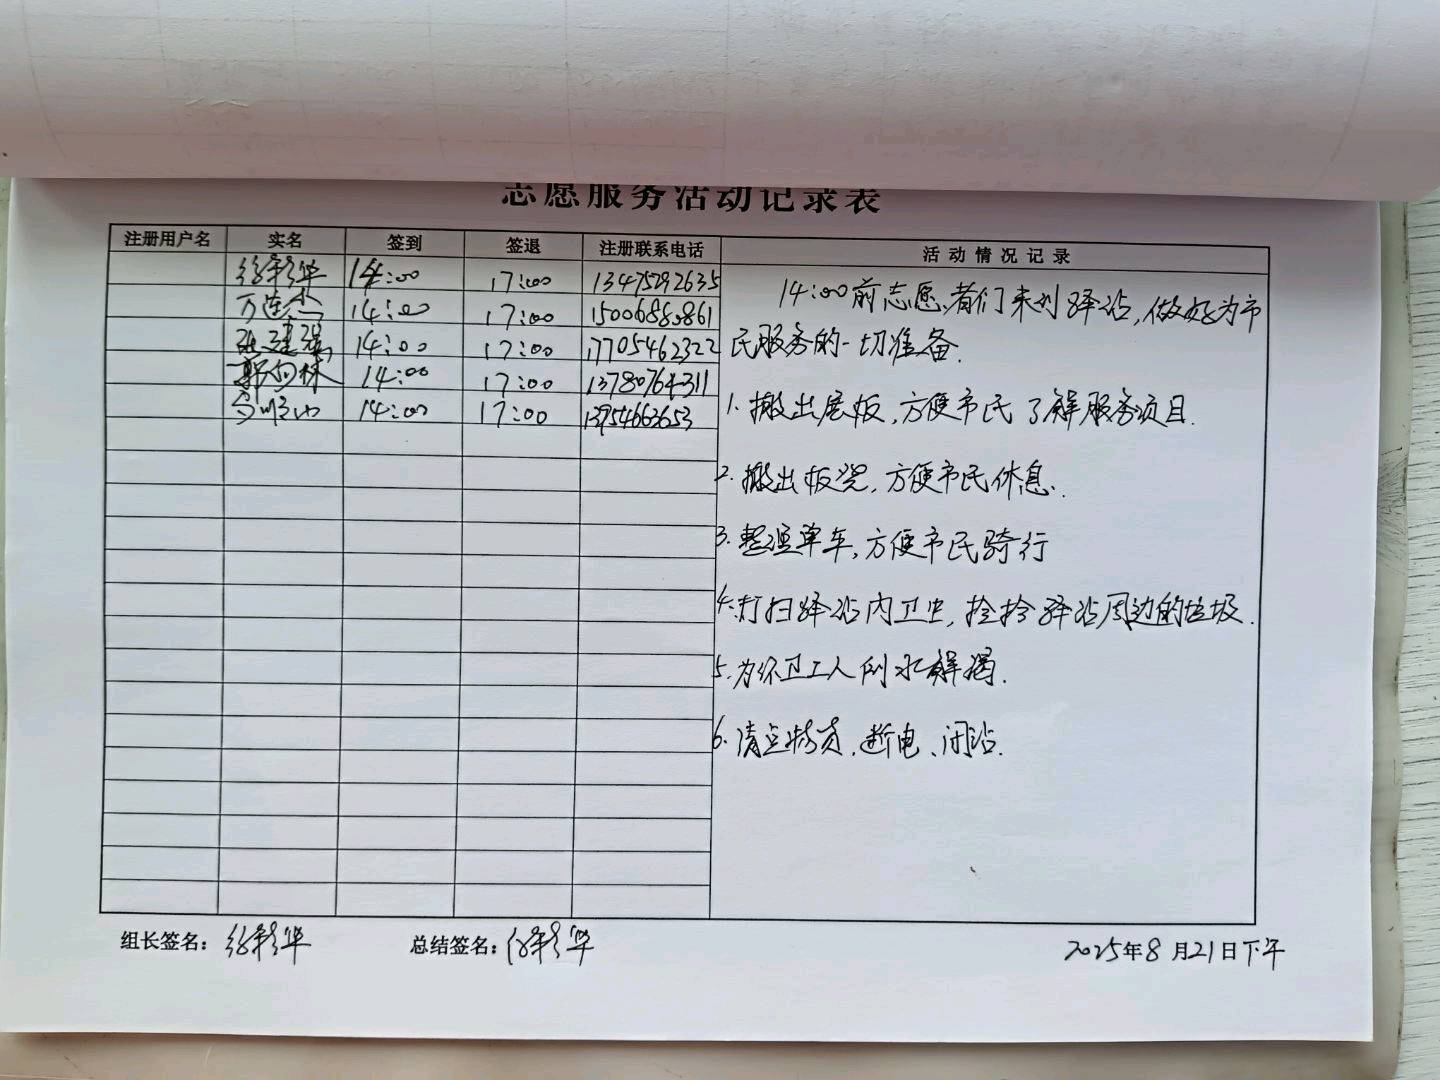 志愿服务活动记录表
注册用户名 实名 签到 签退 注册联系电话 活动情况记录
徐彩华 14:00 17:00 13475292635
14:00 17:00 15006880861
张建强 14:00 17:00 17705462322
郭向林 14:00 17:00 13780764311
14:00 17:00 13954663653
14:00前志愿者们来到驿站,做好为市
民服务的一切准备.
1.搬出展板,方便市民了解服务项目.
2.搬出板凳,方便市民休息.
3.整理单车,方便市民骑行
4.打扫驿站内卫生,捡拾驿站周边的垃圾.
5.为环卫工人供水解渴.
6.清点物资、断电、闭站.
组长签名:徐彩华 总结签名:徐彩华 2025年8月21日下午